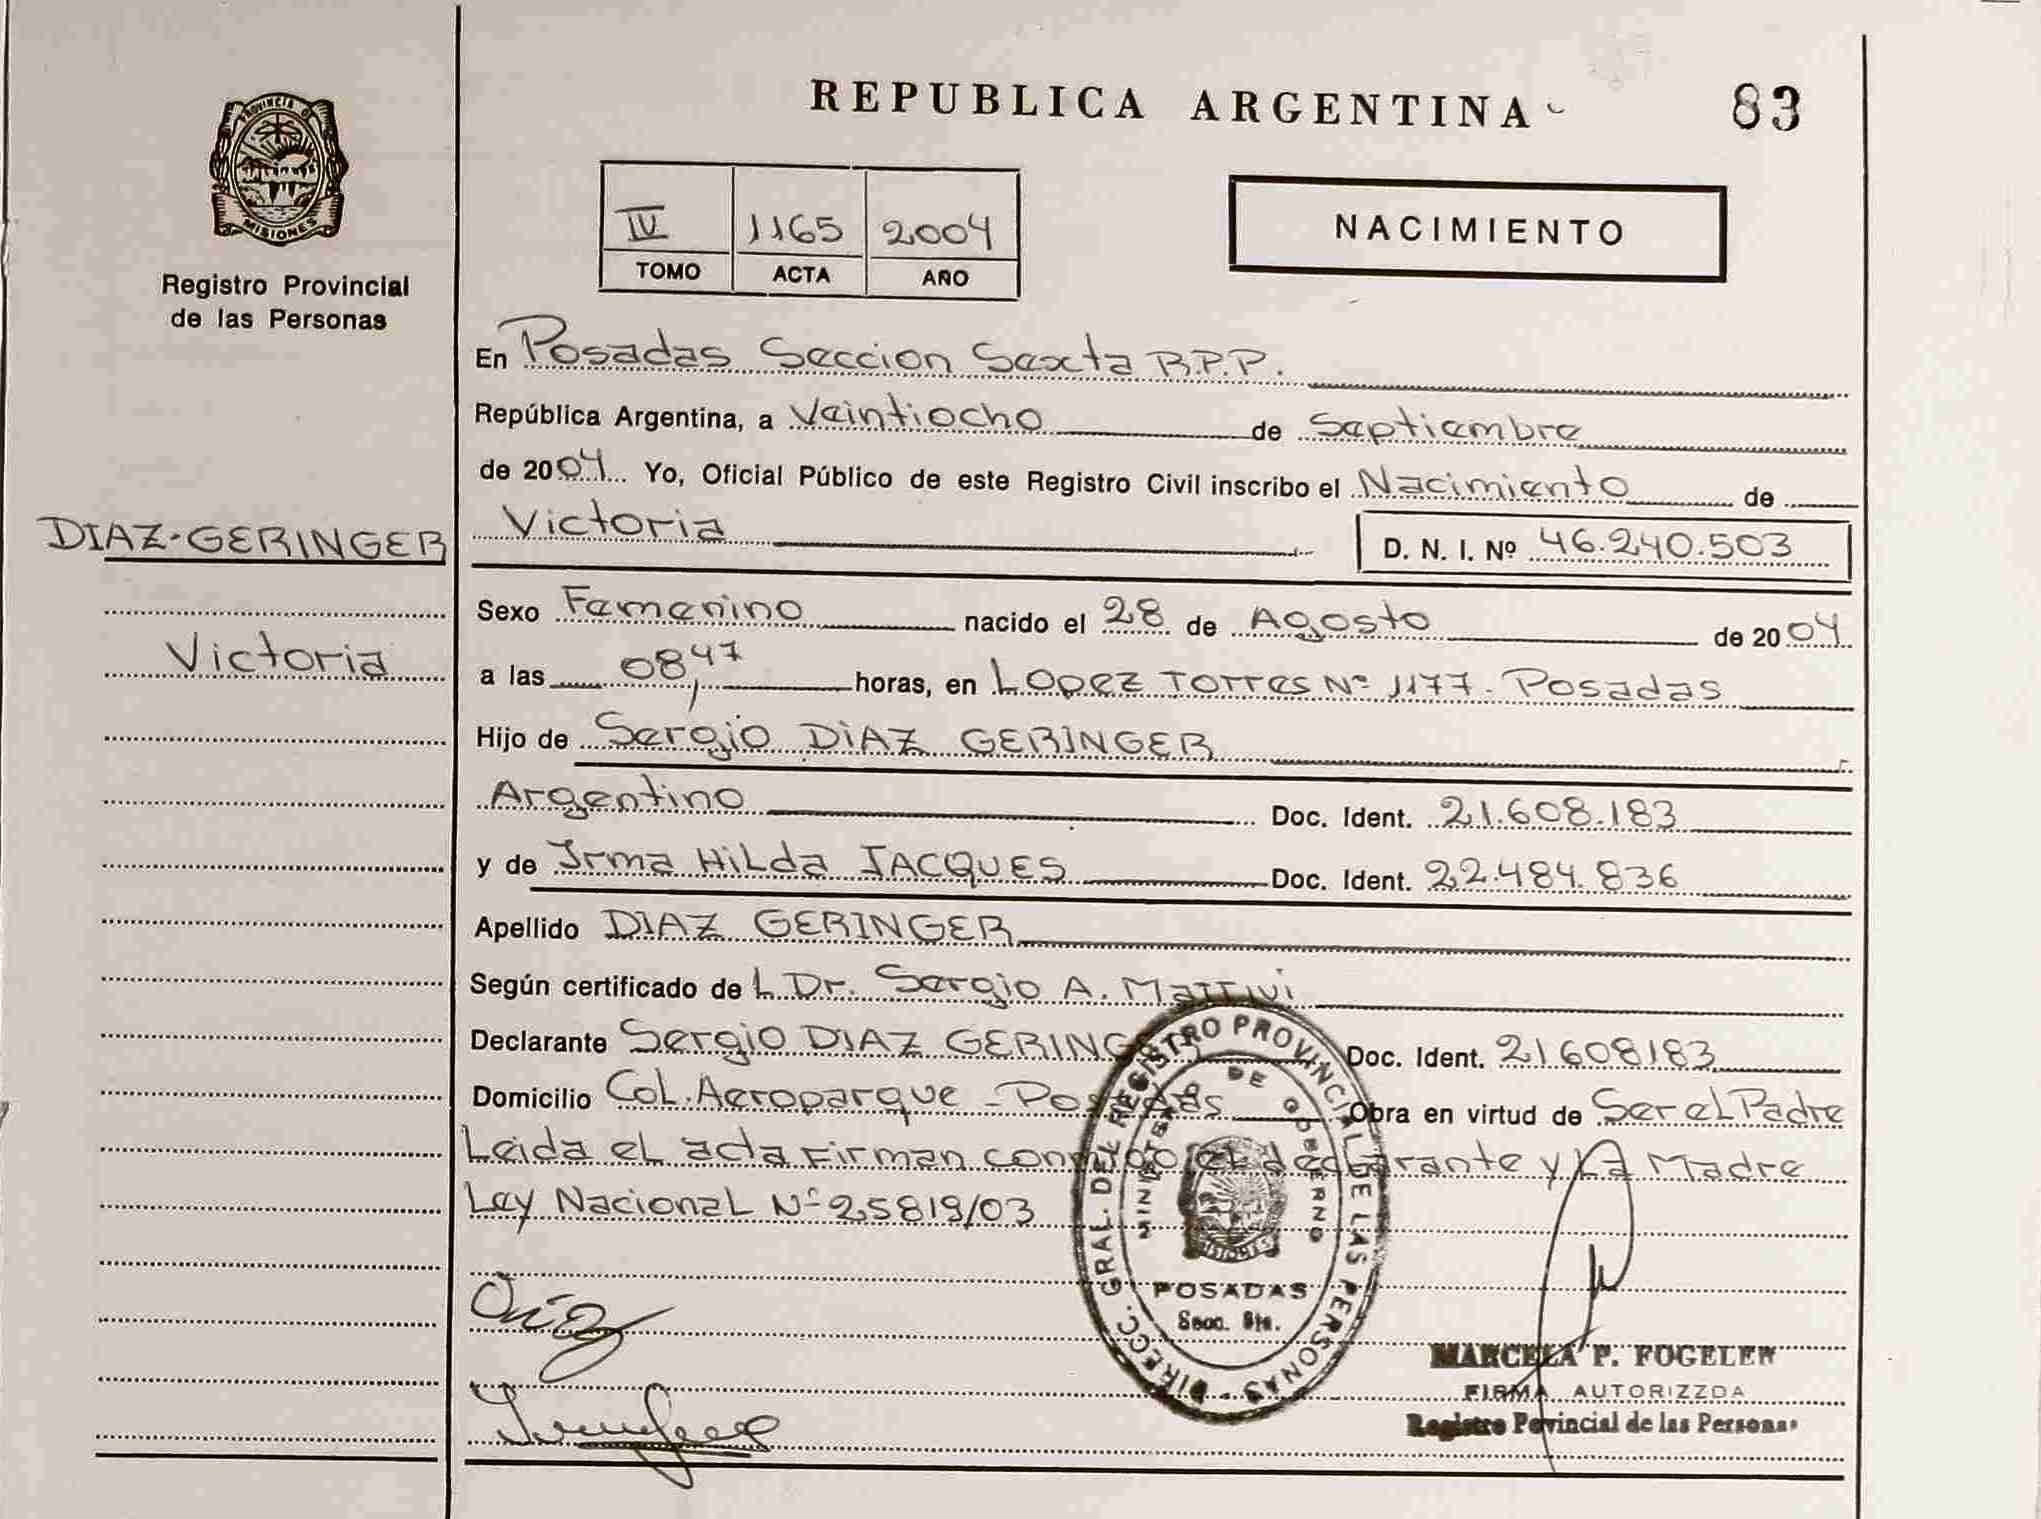 PROVINCIA D
MISIONES
Registro Provincial
de las Personas
DIAZ-GERINGER
Victoria
REPUBLICA ARGENTINA
83
IV 1165 2004
TOMO ACTA AÑO
NACIMIENTO
En Posadas Seccion Sexta R.P.P.
República Argentina, a Veintiocho de Septiembre
de 2004 Yo, Oficial Público de este Registro Civil inscribo el Nacimiento de
Victoria D. N. I. Nº 46.240.503
Sexo Femenino nacido el 28 de Agosto de 2004
a las 08,47 horas, en Lopez Torres Nº 1177. Posadas
Hijo de Sergio DIAZ GERINGER
Argentino Doc. Ident. 21.608.183
y de Irma Hilda JACQUES Doc. Ident. 22.484.836
Apellido DIAZ GERINGER
Según certificado de L Dr. Sergio A. Mattivi
Declarante Sergio DIAZ GERING Doc. Ident. 21608183
Domicilio Col. Aeroparque - Posadas Obra en virtud de Ser el Padre
Leida el acta Firman conmigo el declarante y La Madre
Ley Nacional Nº 25819/03
DIRECC. GRAL. DEL REGISTRO PROVINCIAL DE LAS PERSONAS
MINISTERIO DE GOBIERNO
MISIONES
POSADAS
Secc. 6ta.
MARCELA P. FOGELER
FIRMA AUTORIZZDA
Registro Povincial de las Personas